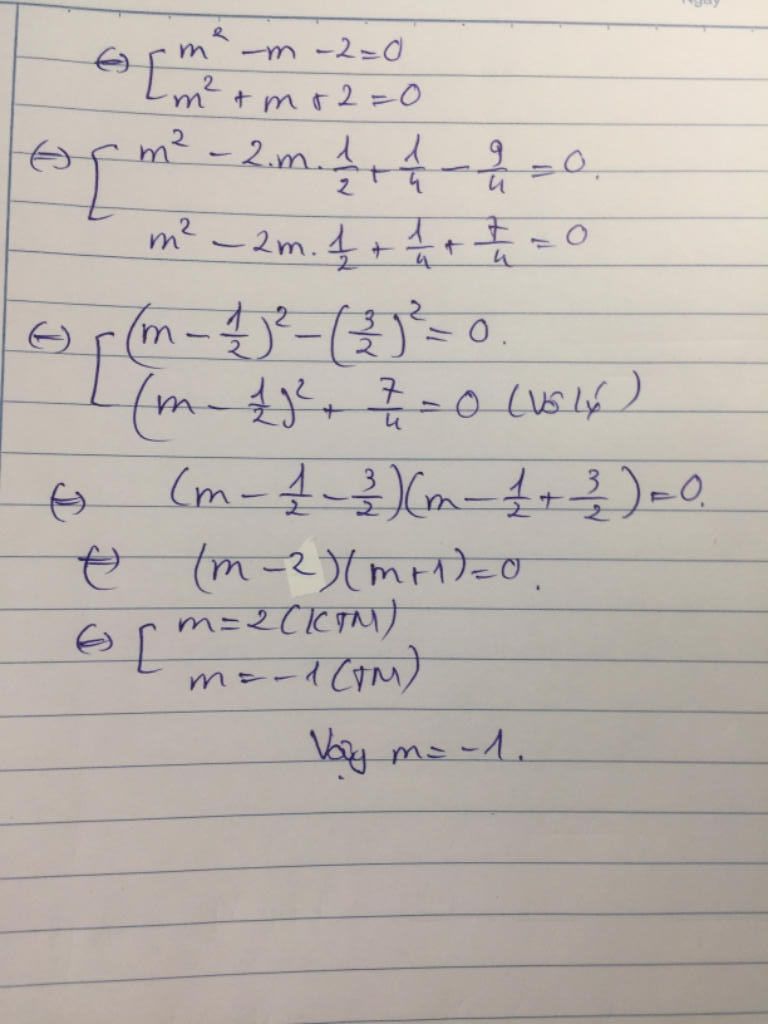 Ngày
⇔ [ m² - m - 2 = 0
m² + m + 2 = 0
⇔ [ m² - 2.m.1/2 + 1/4 - 9/4 = 0.
m² - 2m.1/2 + 1/4 + 7/4 = 0
⇔ [ (m - 1/2)² - (3/2)² = 0.
(m - 1/2)² + 7/4 = 0 (Vô lý)
⇔ (m - 1/2 - 3/2)(m - 1/2 + 3/2) = 0.
⇔ (m - 2)(m + 1) = 0.
⇔ [ m = 2 (KTM)
m = -1 (TM)
Vậy m = -1.